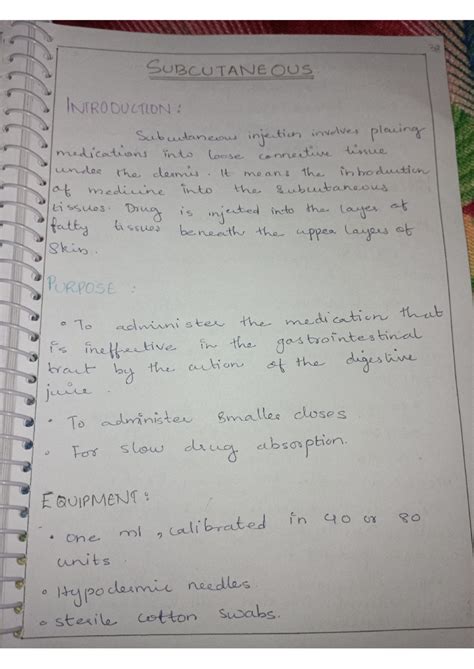 SUBCUTANEOUS
INTRODUCTION :
Subcutaneous injection involves placing
medications into loose connective tissue
under the dermis. It means the introduction
of medicine into the subcutaneous
tissues. Drug is injected into the layer of
fatty tissues beneath the upper layers of
skin.
PURPOSE :
• To administer the medication that
is ineffective in the gastrointestinal
tract by the action of the digestive
juice.
• To administer smaller doses.
• For slow drug absorption.
EQUIPMENT :
• One ml, calibrated in 40 or 80
units.
• Hypodermic needles
• sterile cotton swabs.